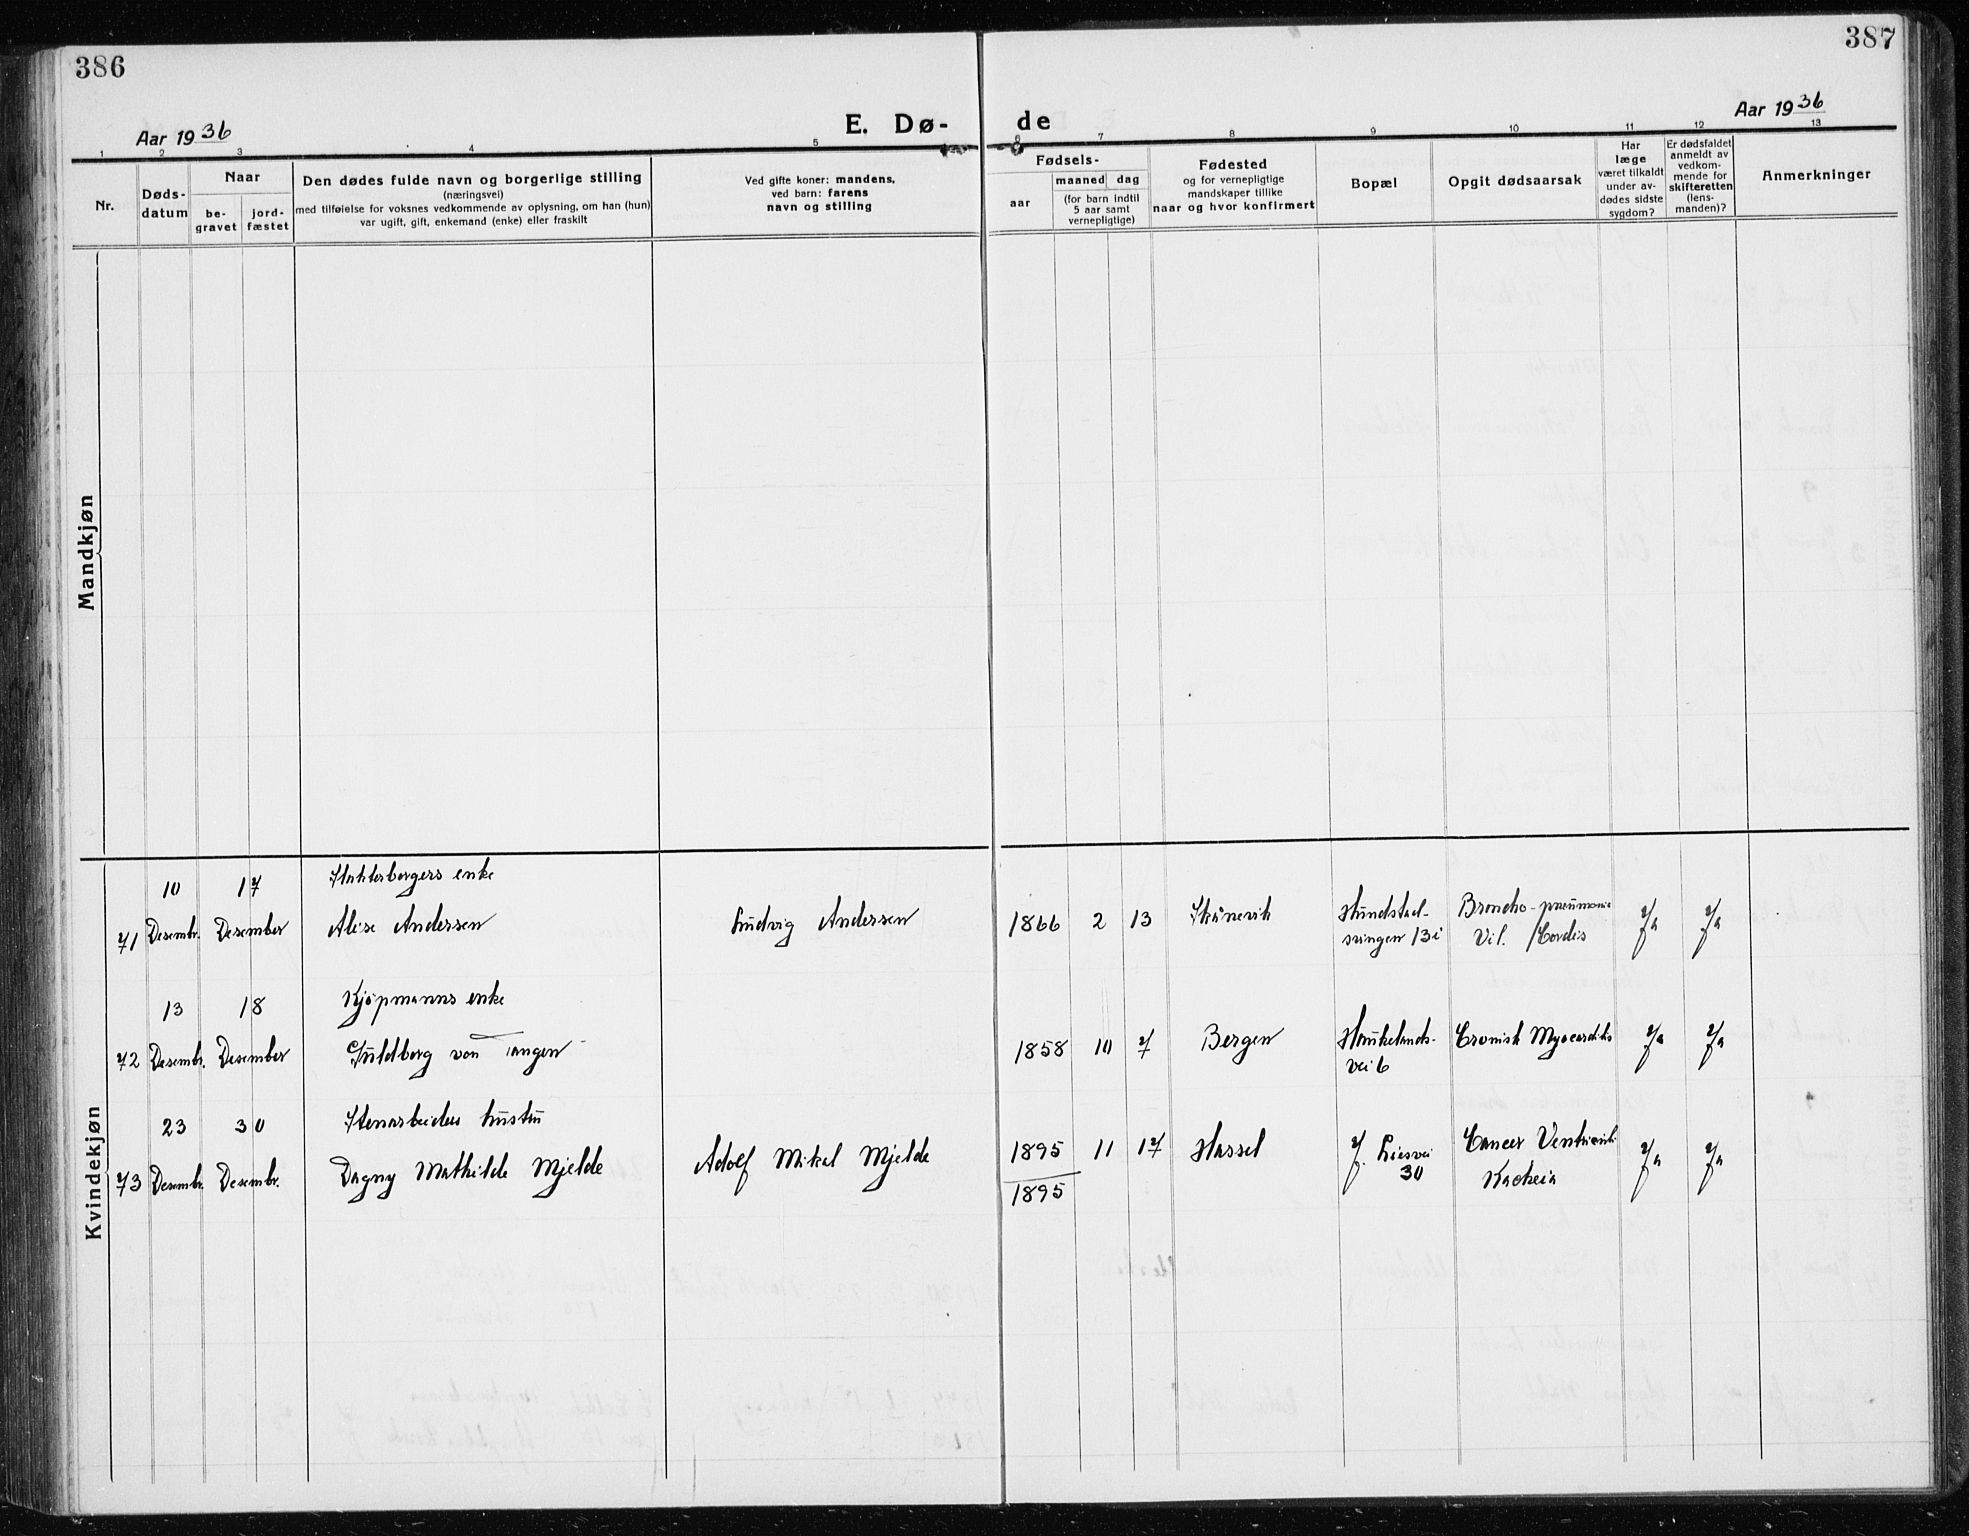 386
387
Aar 1936
E. Dø-
de
Aar 1936
1 2 3 4 5 6 7 8 9 10 11 12 13
Nr.
Døds-
datum
Naar
be-
gravet
jord-
fæstet
Den dødes fulde navn og borgerlige stilling
(næringsvei)
med tilføielse for voksnes vedkommende av oplysning, om han (hun)
var ugift, gift, enkemand (enke) eller fraskilt
Ved gifte koner: mandens,
ved barn: farens
navn og stilling
Fødsels-
aar
maaned dag
(for barn indtil
5 aar samt
vernepligtige)
Fødested
og for vernepligtige
mandskaper tillike
naar og hvor konfirmert
Bopæl
Opgit dødsaarsak
Har
læge
været tilkaldt
under av-
dødes sidste
sygdom?
Er dødsfaldet
anmeldt av
vedkom-
mende for
skifteretten
(lens-
manden)?
Anmerkninger
Mandkjøn
Kvindekjøn
10 17 enke
71 Desembr. Desember Alise Andersen Ludvig Andersen 1866 2 13 Skånevik
svingen 13i
Broncho-pneumonie
Vit. Cordis
Ja Ja
13 18 Kjøpmanns enke
72 Desembr. Desember Guldborg von Tangen 1858 10 7 Bergen Haukelands-
vei 6
Cronisk Myocarditis Ja Ja
23 30 Stenarbeiders hustru
73 Desembr. Desembr. Dagny Mathilde Mjelde Adolf Mikal Mjelde 1895 11 17 Hassel J. Liesvei
30
Cancer Ventriculi
Kachexia
Ja Ja
1895